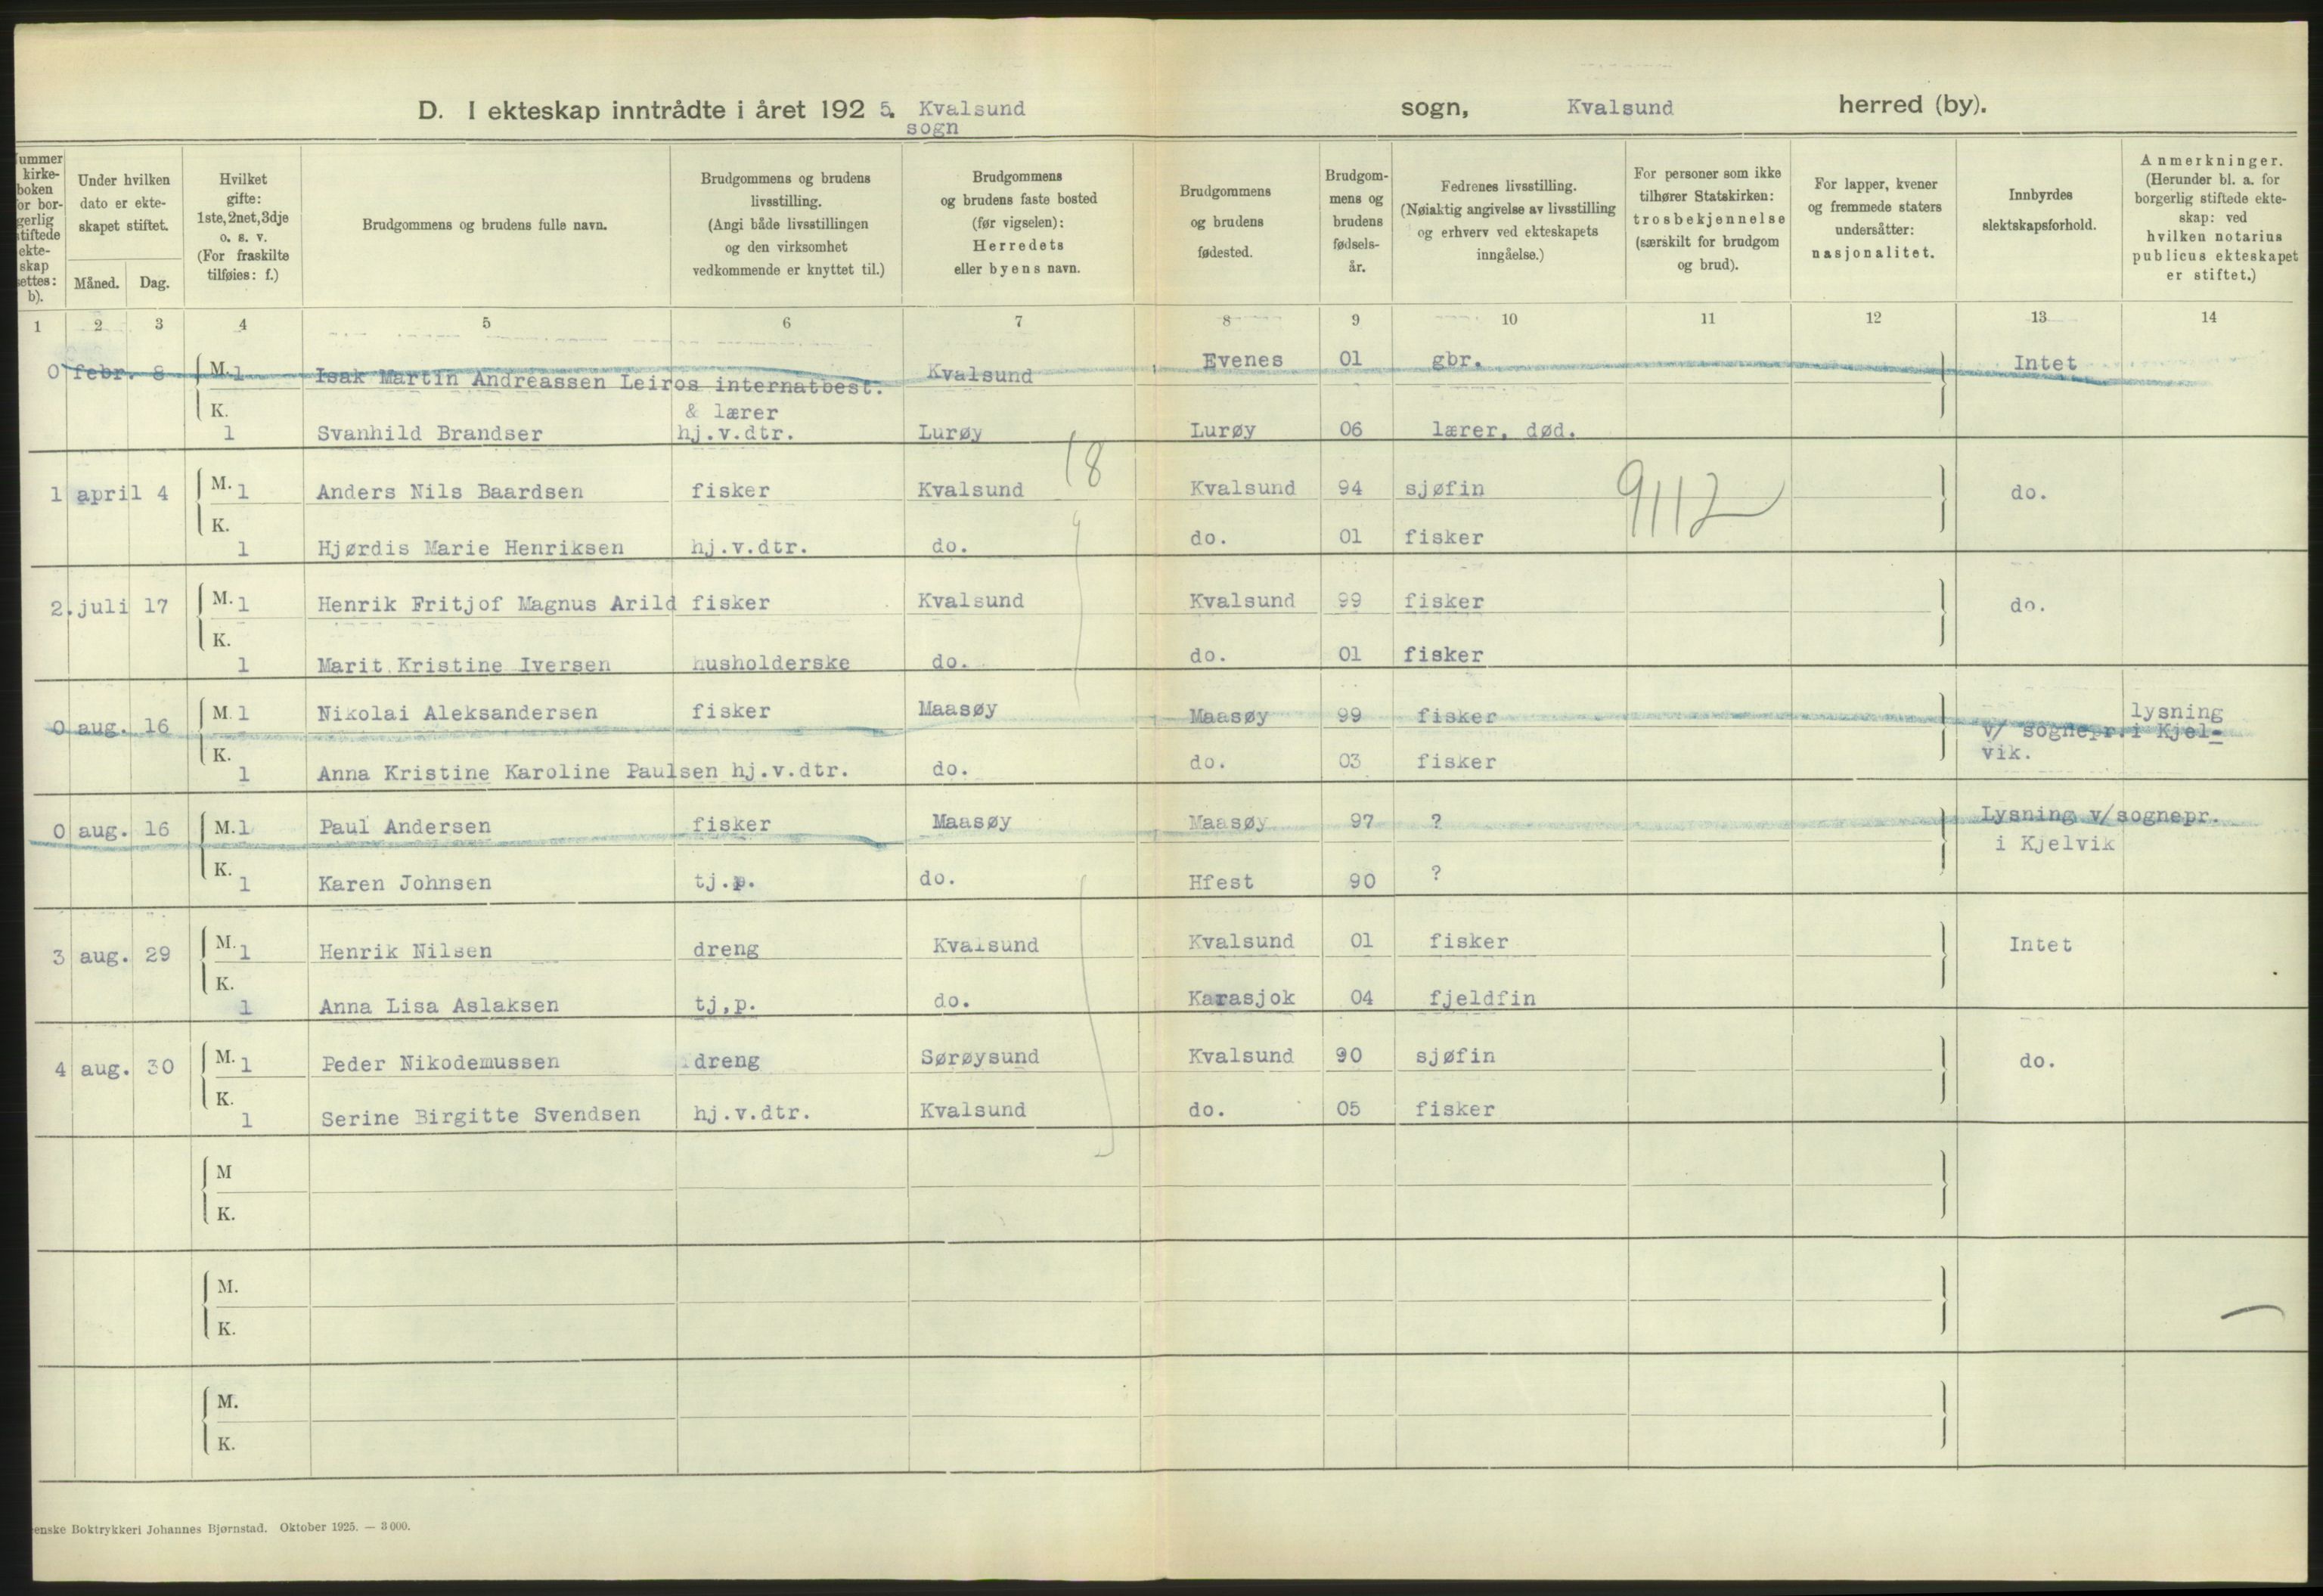 D. I ekteskap inntrådte i året 192 5. Kvalsund sogn, Kvalsund herred (by).
sogn
ummer kirke- boken or bor- gerlig tiftede ekte- skap ettes: b).
Under hvilken dato er ekte- skapet stiftet.
Måned. Dag.
Hvilket gifte: 1ste, 2net, 3dje o. s. v. (For fraskilte tilføies: f.)
Brudgommens og brudens fulle navn.
Brudgommens og brudens livsstilling. (Angi både livsstillingen og den virksomhet vedkommende er knyttet til.)
Brudgommens og brudens faste bosted (før vigselen): Herredets eller byens navn.
Brudgommens og brudens fødested.
Brudgom- mens og brudens fødsels- år.
Fedrenes livsstilling. (Nøiaktig angivelse av livsstilling og erhverv ved ekteskapets inngåelse.)
For personer som ikke tilhører Statskirken: trosbekjennelse (særskilt for brudgom og brud).
For lapper, kvener og fremmede staters undersåtter: nasjonalitet.
Innbyrdes slektskapsforhold.
Anmerkninger. (Herunder bl. a. for borgerlig stiftede ekte- skap: ved hvilken notarius publicus ekteskapet er stiftet.)
1 2 3 4 5 6 7 8 9 10 11 12 13 14
0 febr. 8 M. 1 Isak Martin Andreassen Leiros internatbest. Kvalsund Evenes 01 gbr. Intet
& lærer
K. 1 Svanhild Brandser hj.v.dtr. Lurøy Lurøy 06 lærer, død.
18
1 april 4 M. 1 Anders Nils Baardsen fisker Kvalsund Kvalsund 94 sjøfin 9112 do.
K. 1 Hjørdis Marie Henriksen hj.v.dtr. do. do. 01 fisker
2. juli 17 M. 1 Henrik Fritjof Magnus Arild fisker Kvalsund Kvalsund 99 fisker do.
K. 1 Marit Kristine Iversen husholderske do. do. 01 fisker
0 aug. 16 M. 1 Nikolai Aleksandersen fisker Maasøy Maasøy 99 fisker lysning
v/ sognepr. i Kjel-
vik.
K. 1 Anna Kristine Karoline Paulsen hj.v.dtr. do. do. 03 fisker
0 aug. 16 M. 1 Paul Andersen fisker Maasøy Maasøy 97 ? Lysning v/sognepr.
i Kjelvik
K. 1 Karen Johnsen tj.p. do. Hfest 90 ?
3 aug. 29 M. 1 Henrik Nilsen dreng Kvalsund Kvalsund 01 fisker Intet
K. 1 Anna Lisa Aslaksen tj,p. do. Karasjok 04 fjeldfin
4 aug. 30 M. 1 Peder Nikodemussen dreng Sørøysund Kvalsund 90 sjøfin do.
K. 1 Serine Birgitte Svendsen hj.v.dtr. Kvalsund do. 05 fisker
M
K.
M.
K.
M.
K.
enske Boktrykkeri Johannes Bjørnstad. Oktober 1925. — 3 000.